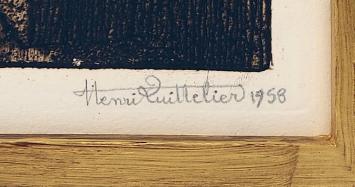 Henri Quittelier 1958